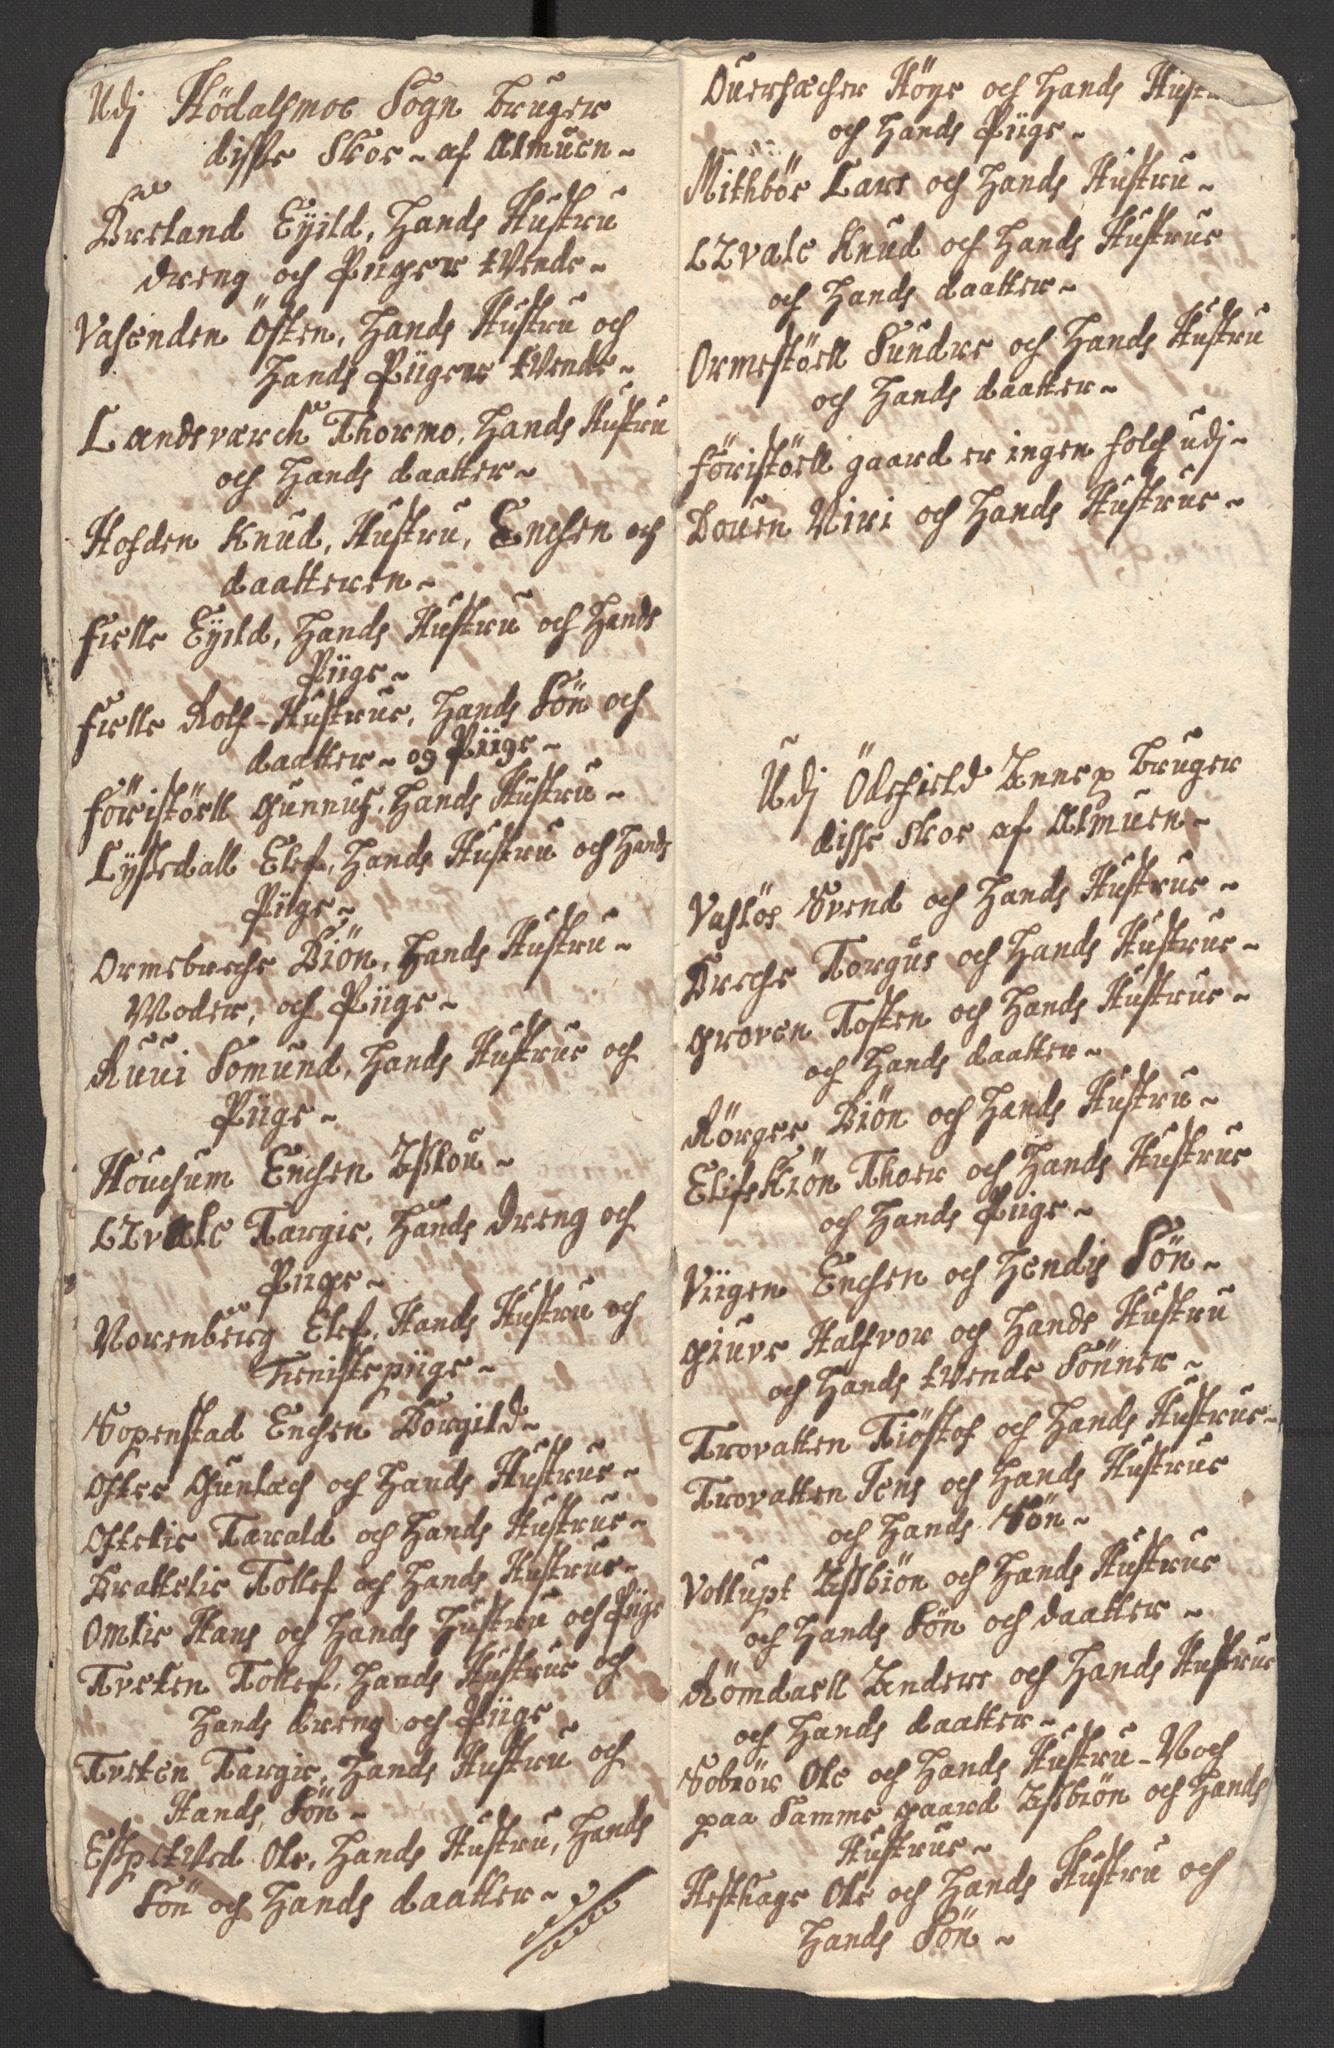 Udj Hödalsmoe Sogn bruger
disse Skoe ~ af Almuen ~
Breland Eyild, Hands Hustru
dreng och Piiger tvende ~
Vasenden Östen, Hands Hustru och
Hands Piigere tvende ~
Landsværch Thormo, Hands Hustru
och Hands daatter ~
Hofden Knud, Hustru, Enchen och
daatteren ~
Fielle Eyild, Hands Hustru och Hands
Piige ~
Fielle Rolf - Hustrue, Hands Sön och
daatter ~ og Piige ~
Föristöell Gunnuf, Hands Hustru ~
Lyssedall Elef, Hands Hustru och Hands
Piige ~
Ormebreche Biön, Hands Hustru ~
Moder, och Piige ~
Ruui Somund, Hands Hustrue och
Piige ~
Houchum Enchen Aslou ~
Lzvale Targie, Hands dreng och
Piige ~
Norenberg Elef, Hands Hustru och
Tienistepiige ~
Sopenstad Enchen Borgild ~
Oftee Gunlech och Hands Hustrue ~
Oftelie Tarald och Hands Hustrue ~
Brattelie Tollef och Hands Hustrue ~
Omlie Hans och Hands Hustru och Piige
Tveten Tollef, Hands Hustrue och
Hands dreng och Piige
Tveten Targie, Hands Hustru och
Hands Sön ~
Espetved Ole, Hands Hustru, Hands
Sön och Hands daatter ~
Ouersæcher Höye och Hands Hustr
och Hands Piige ~
Mithböe Lars och Hands Hustru ~
Lzvale Knud och Hands Hustrue
och Hands daatter ~
Ormestöell Sundre och Hands Hustru
och Hands daatter ~
Föristöell gaard er ingen folch udj ~
Bouen Niri och Hands Hustrue ~
Udj Ödefield Annex bruger
disse Skoe af Almuen ~
Vaslöe Svend och Hands Hustrue ~
Breche Torgus och Hands Hustrue ~
Groven Tosten och Hands Hustrue ~
och Hands daatter ~
Rörgee Biön och Hands Hustru ~
Elifskiön Thoer och Hands Hustrue
och Hands Piige ~
Viigen Enchen och Hendis Sön ~
Giuve Halfvor och Hands Hustru
och Hands tvende Sönner ~
Trovatten Tiöstof och Hands Hustrue ~
Trovatten Jens och Hands Hustrue
och Hands Sön ~
Vollupt Asbiön och Hands Hustrue
och Hands Sön och daatter ~
Römdaell Anders och Hands Hustrue
och Hands daatter ~
Sobröe Ole och Hands Hustru - Noch
paa Samme gaard Asbiön och Hands
Hustrue ~
Hesthage Ole och Hands Hustru och
Hands Sön ~